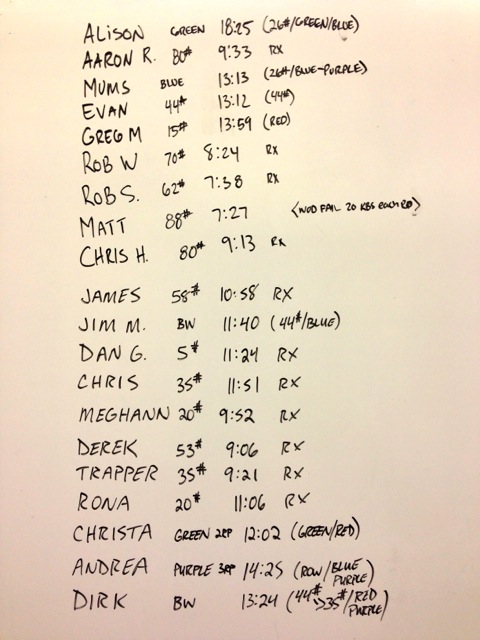 ALISON GREEN 18:25 (26#/GREEN/BLUE)
AARON R. 80# 9:33 RX
MUMS BLUE 13:13 (26#/BLUE-PURPLE)
EVAN 44# 13:12 (44#)
GREG M 15# 13:59 (RED)
ROB W 70# 8:24 RX
ROB S. 62# 7:38 RX
MATT 88# 7:27 <WOD FAIL 20 KBS EACH RD>
CHRIS H. 80# 9:13 RX
JAMES 58# 10:58 RX
JIM M. BW 11:40 (44#/BLUE)
DAN G. 5# 11:24 RX
CHRIS 35# 11:51 RX
MEGHANN 20# 9:52 RX
DEREK 53# 9:06 RX
TRAPPER 35# 9:21 RX
RONA 20# 11:06 RX
CHRISTA GREEN 2RP 12:02 (GREEN/RED)
ANDREA PURPLE 3RP 14:25 (ROW/BLUE
PURPLE)
DIRK BW 13:24 (44#>35#/RED
PURPLE)